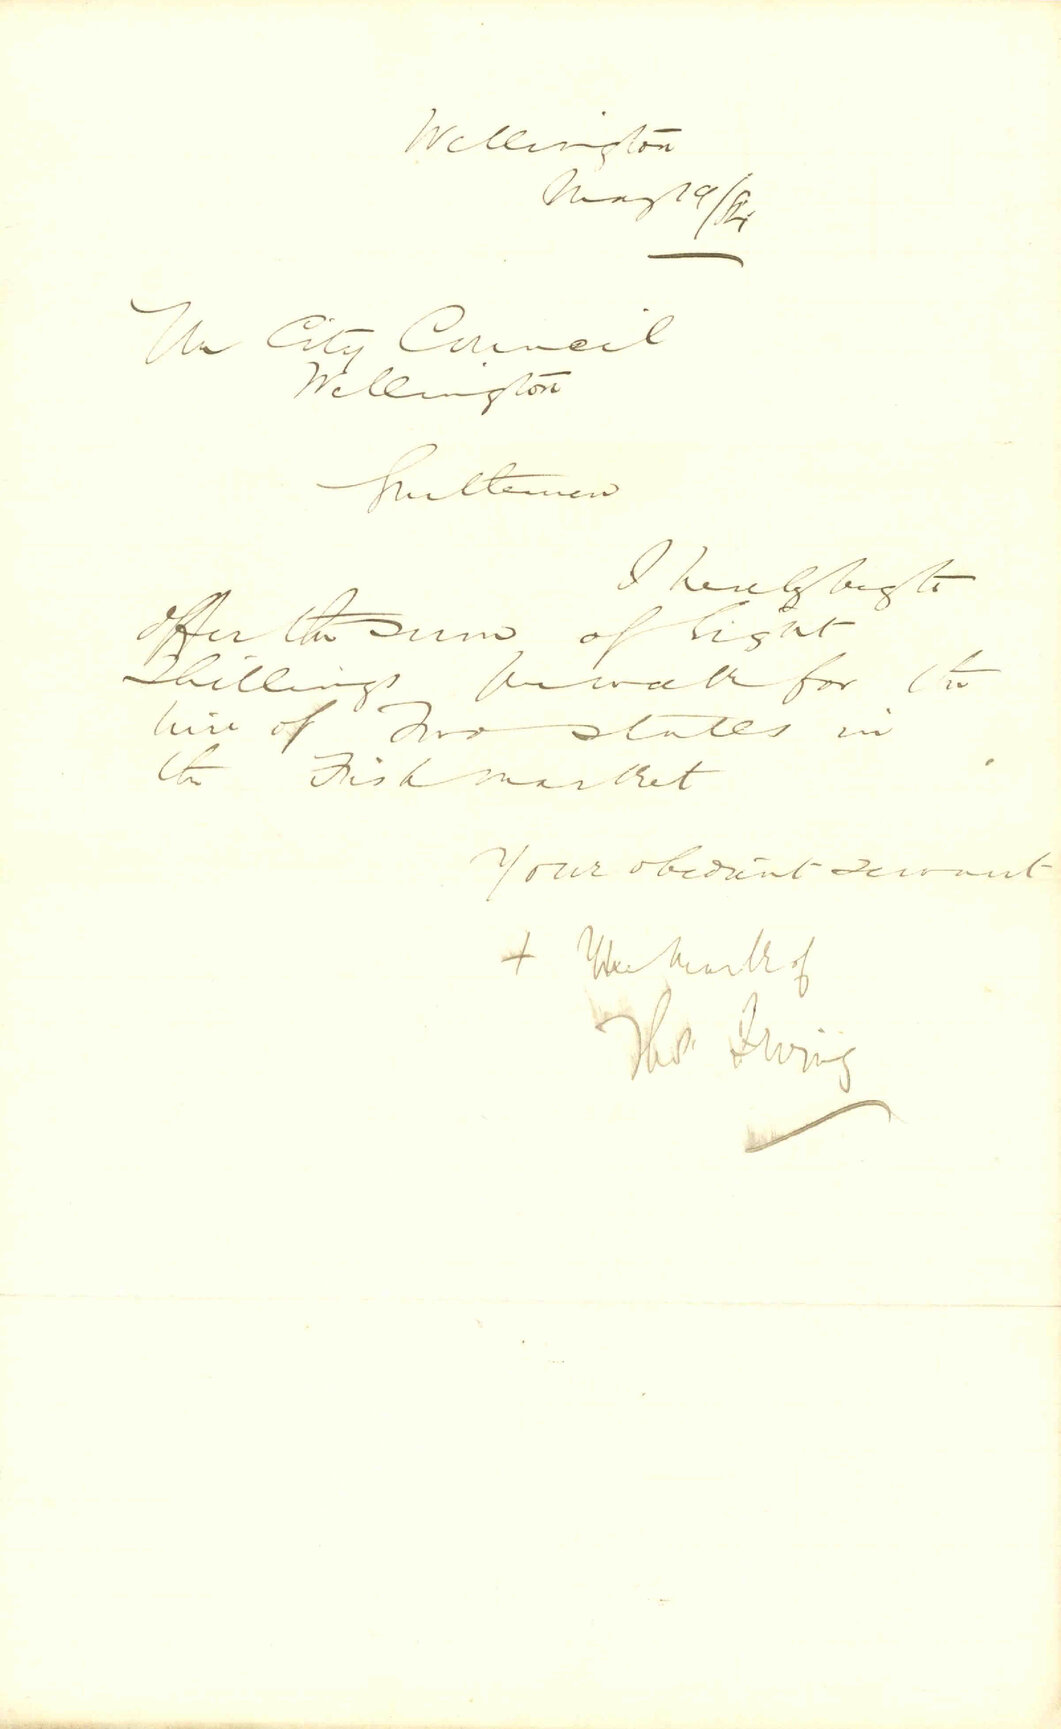 Wellington
May 19/94
The City Council
Wellington
Gentlemen
I hereby beg to
offer the sum of Eight
Shillings per week for the
hire of Two stalls in
the Fish market
Your obedient servant
+ The mark of
Thos. Irving